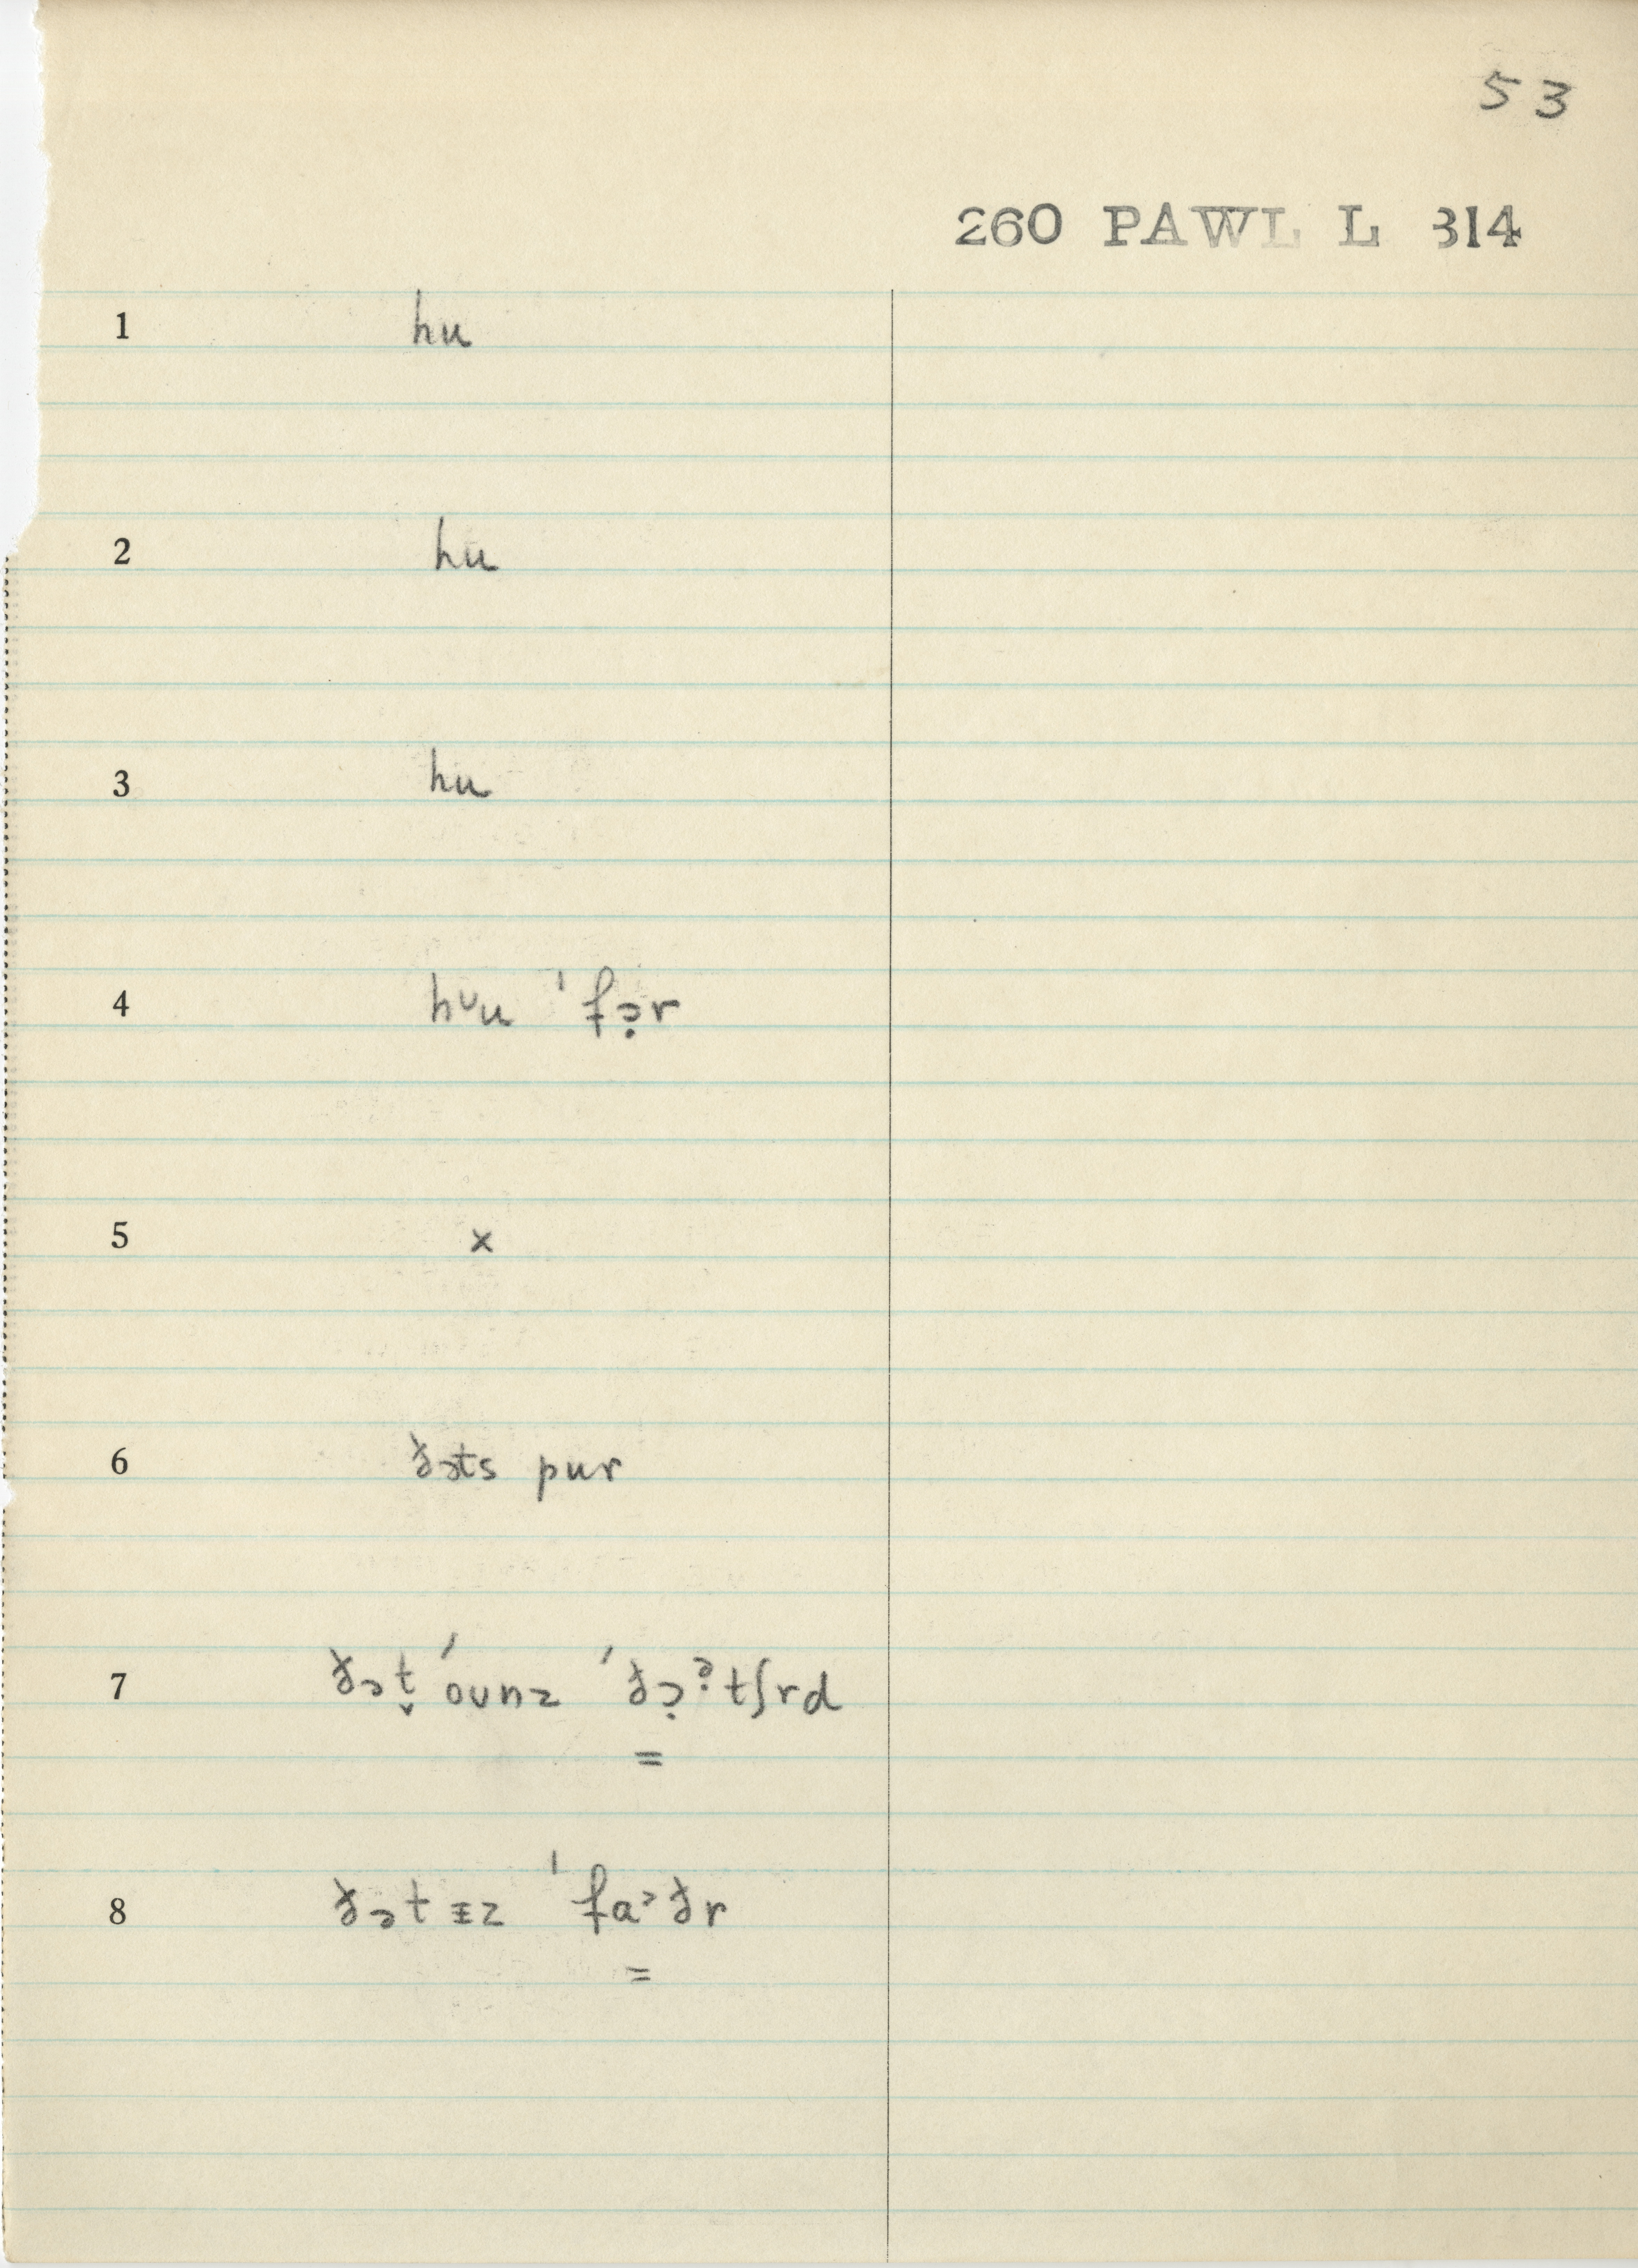 53
260 PAWL L 314
1 hu
2 hu
3 hu
4 hᴜu ˈfɔ̣r
5 x
6 ðəts pur
7 ðət̬ ˈounz ˈðɔ̣ᵊtʃrd
=
8 ðət ɪz ˈfaᵊðr
=